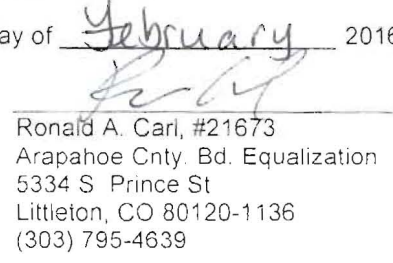 ay of February 2016
Ronald A. Carl, #21673
Arapahoe Cnty. Bd. Equalization
5334 S Prince St
Littleton, CO 80120-1136
(303) 795-4639